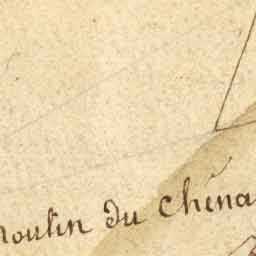 Moulin du Chéna